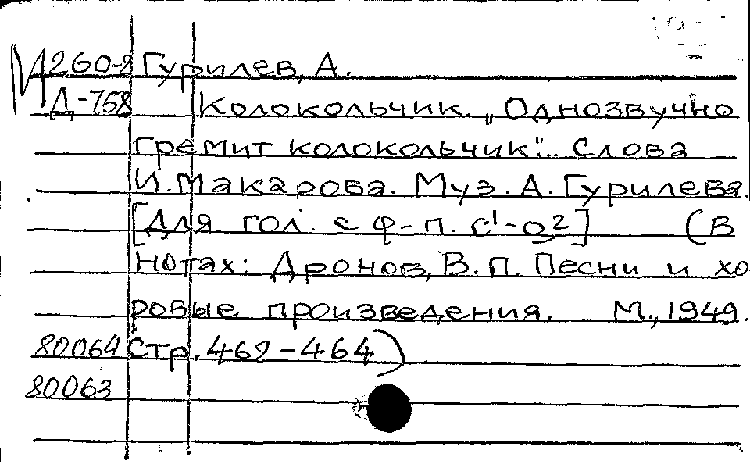 М 260-8 Гурилев, А.
Д-768 Колокольчик. „Однозвучно
гремит колокольчик". Слова
И. Макарова. Муз. А. Гурилева.
[Для гол. с ф-п. c¹-g²] (В
нотах: Дронов, В. П. Песни и хо
ровые произведения. М., 1949.
80064 Стр. 462-464)
80063